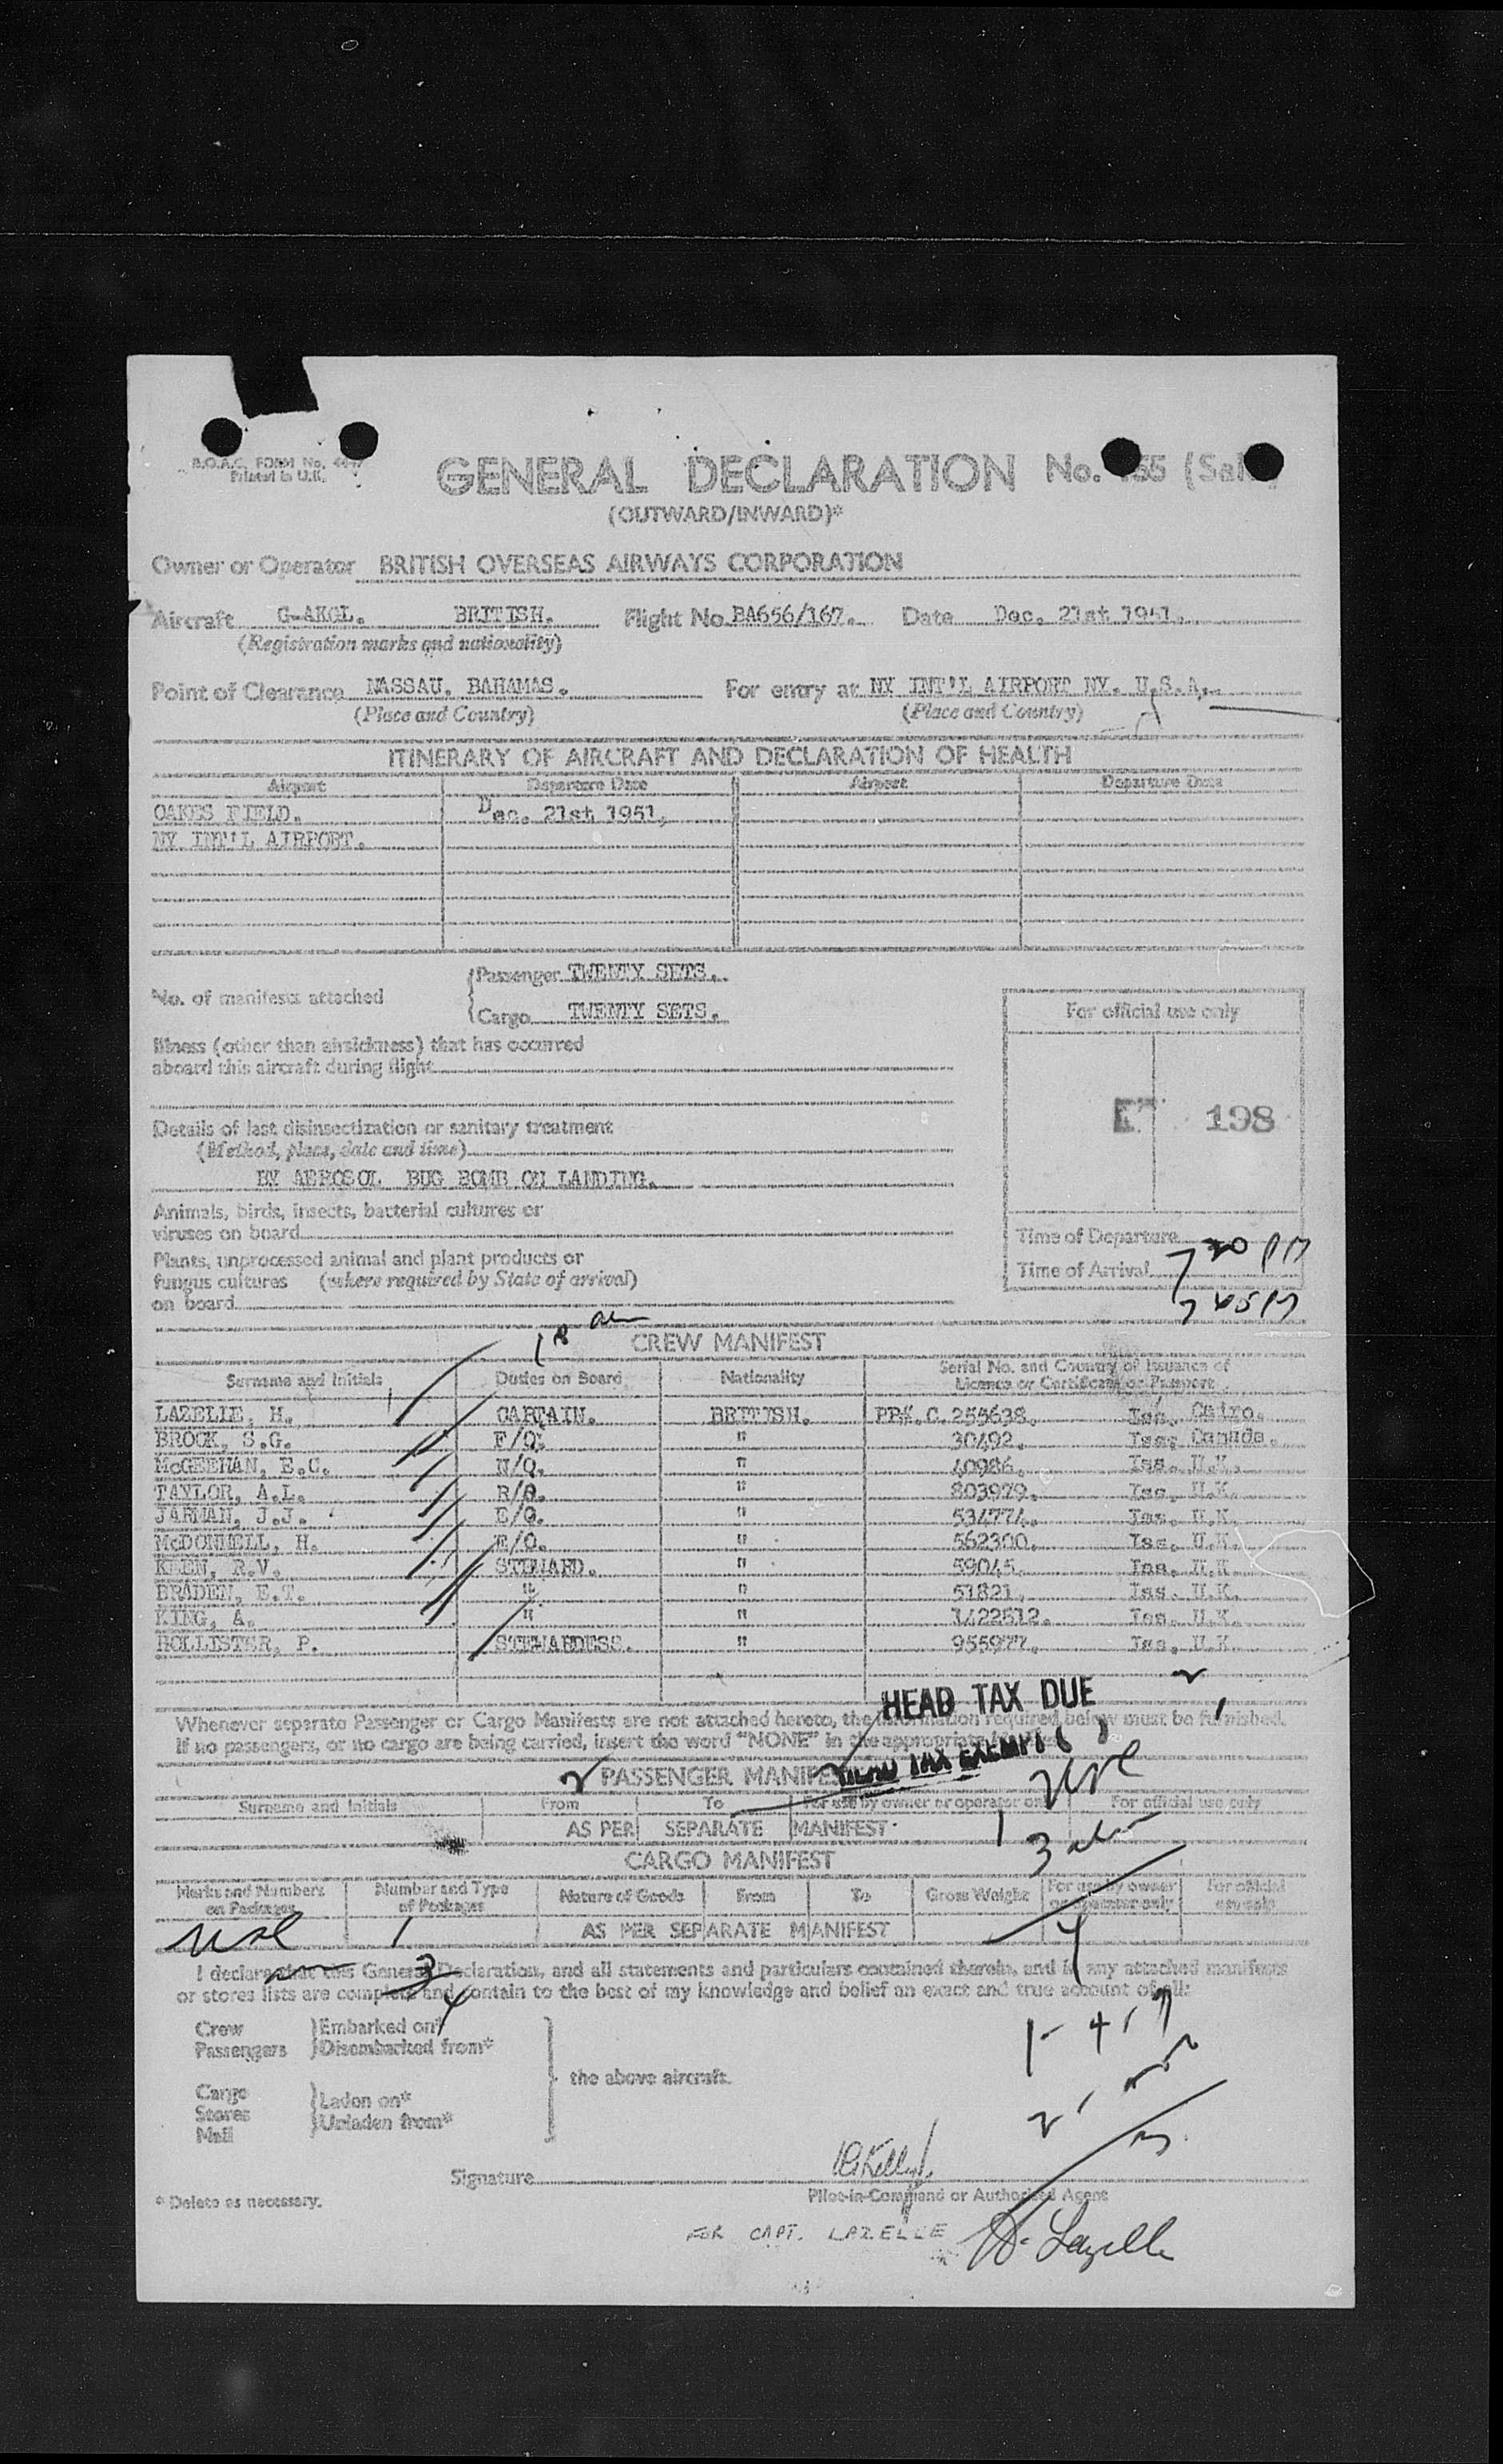 B.O.A.C. FORM No.
Printed in U.K.
GENERAL DECLARATION No. 55
(OUTWARD/INWARD)*
Owner or Operator BRITISH OVERSEAS AIRWAYS CORPORATION
Aircraft G-AKGL. BRITISH. Flight No. BA656/167. Date Dec. 21st 1951.
(Registration marks and nationality)
Point of Clearance NASSAU, BAHAMAS. For entry at NY INT'L AIRPORT NY. U.S.A.
(Place and Country) (Place and Country)
ITINERARY OF AIRCRAFT AND DECLARATION OF HEALTH
Airport Departure Date Airport Departure Date
OAKES FIELD. Dec. 21st 1951,
NY INT'L AIRPORT.
No. of manifests attached
Passenger TWENTY SETS.
Cargo TWENTY SETS.
For official use only
Illness (other than airsickness) that has occurred
aboard this aircraft during flight
198
Details of last disinsectization or sanitary treatment
(Method, place, date and time)
BY AEROSOL BUG BOMB ON LANDING.
Animals, birds, insects, bacterial cultures or
viruses on board
Plants, unprocessed animal and plant products or
fungus cultures (where required by State of arrival)
on board
Time of Departure
Time of Arrival 7 20 PM
7 45 PM
CREW MANIFEST
Surname and Initials Duties on Board Nationality Serial No. and Country of Issuance of
Licence or Certificate or Passport
LAZELLE, H. CAPTAIN. BRITISH. PP#.C. 255638. Iss. Cairo.
BROCK, S.G. F/O. " 30492. Iss. Canada.
McGEEHAN, E.C. N/O. " 40986. Iss. U.K.
TAYLOR, A.L. R/O. " 803979. Iss. U.K.
JARMAN, J.J. E/O. " 534774. Iss. U.K.
McDONNELL, H. E/O. " 562300. Iss. U.K.
KLEN, R.V. STEWARD. " 59045. Iss. U.K
BRADEN, E.T. " " 51821. Iss. U.K.
KING, A. " " 1422512. Iss. U.K.
HOLLISTER, P. STEWARDESS. " 955977. Iss. U.K.
HEAD TAX DUE
Whenever separate Passenger or Cargo Manifests are not attached hereto, the information required below must be furnished.
If no passengers, or no cargo are being carried, insert the word "NONE" in the appropriate
HEAD TAX EXEMPT
PASSENGER MANIFEST
Surname and Initials From To For use by owner or operator only For official use only
AS PER SEPARATE MANIFEST
CARGO MANIFEST
Marks and Numbers on Packages Number and Type of Packages Nature of Goods From To Gross Weight For use by owner or operator only For official use only
AS PER SEPARATE MANIFEST
I declare that this General Declaration, and all statements and particulars contained therein, and in any attached manifests
or stores lists are complete and contain to the best of my knowledge and belief an exact and true account of all:
Crew
Passengers
Embarked on*
Disembarked from*
the above aircraft.
Cargo
Stores
Mail
Laden on*
Unladen from*
Signature
Pilot-in-Command or Authorised Agent
* Delete as necessary.
FOR CAPT. LAZELLE H. Lazelle